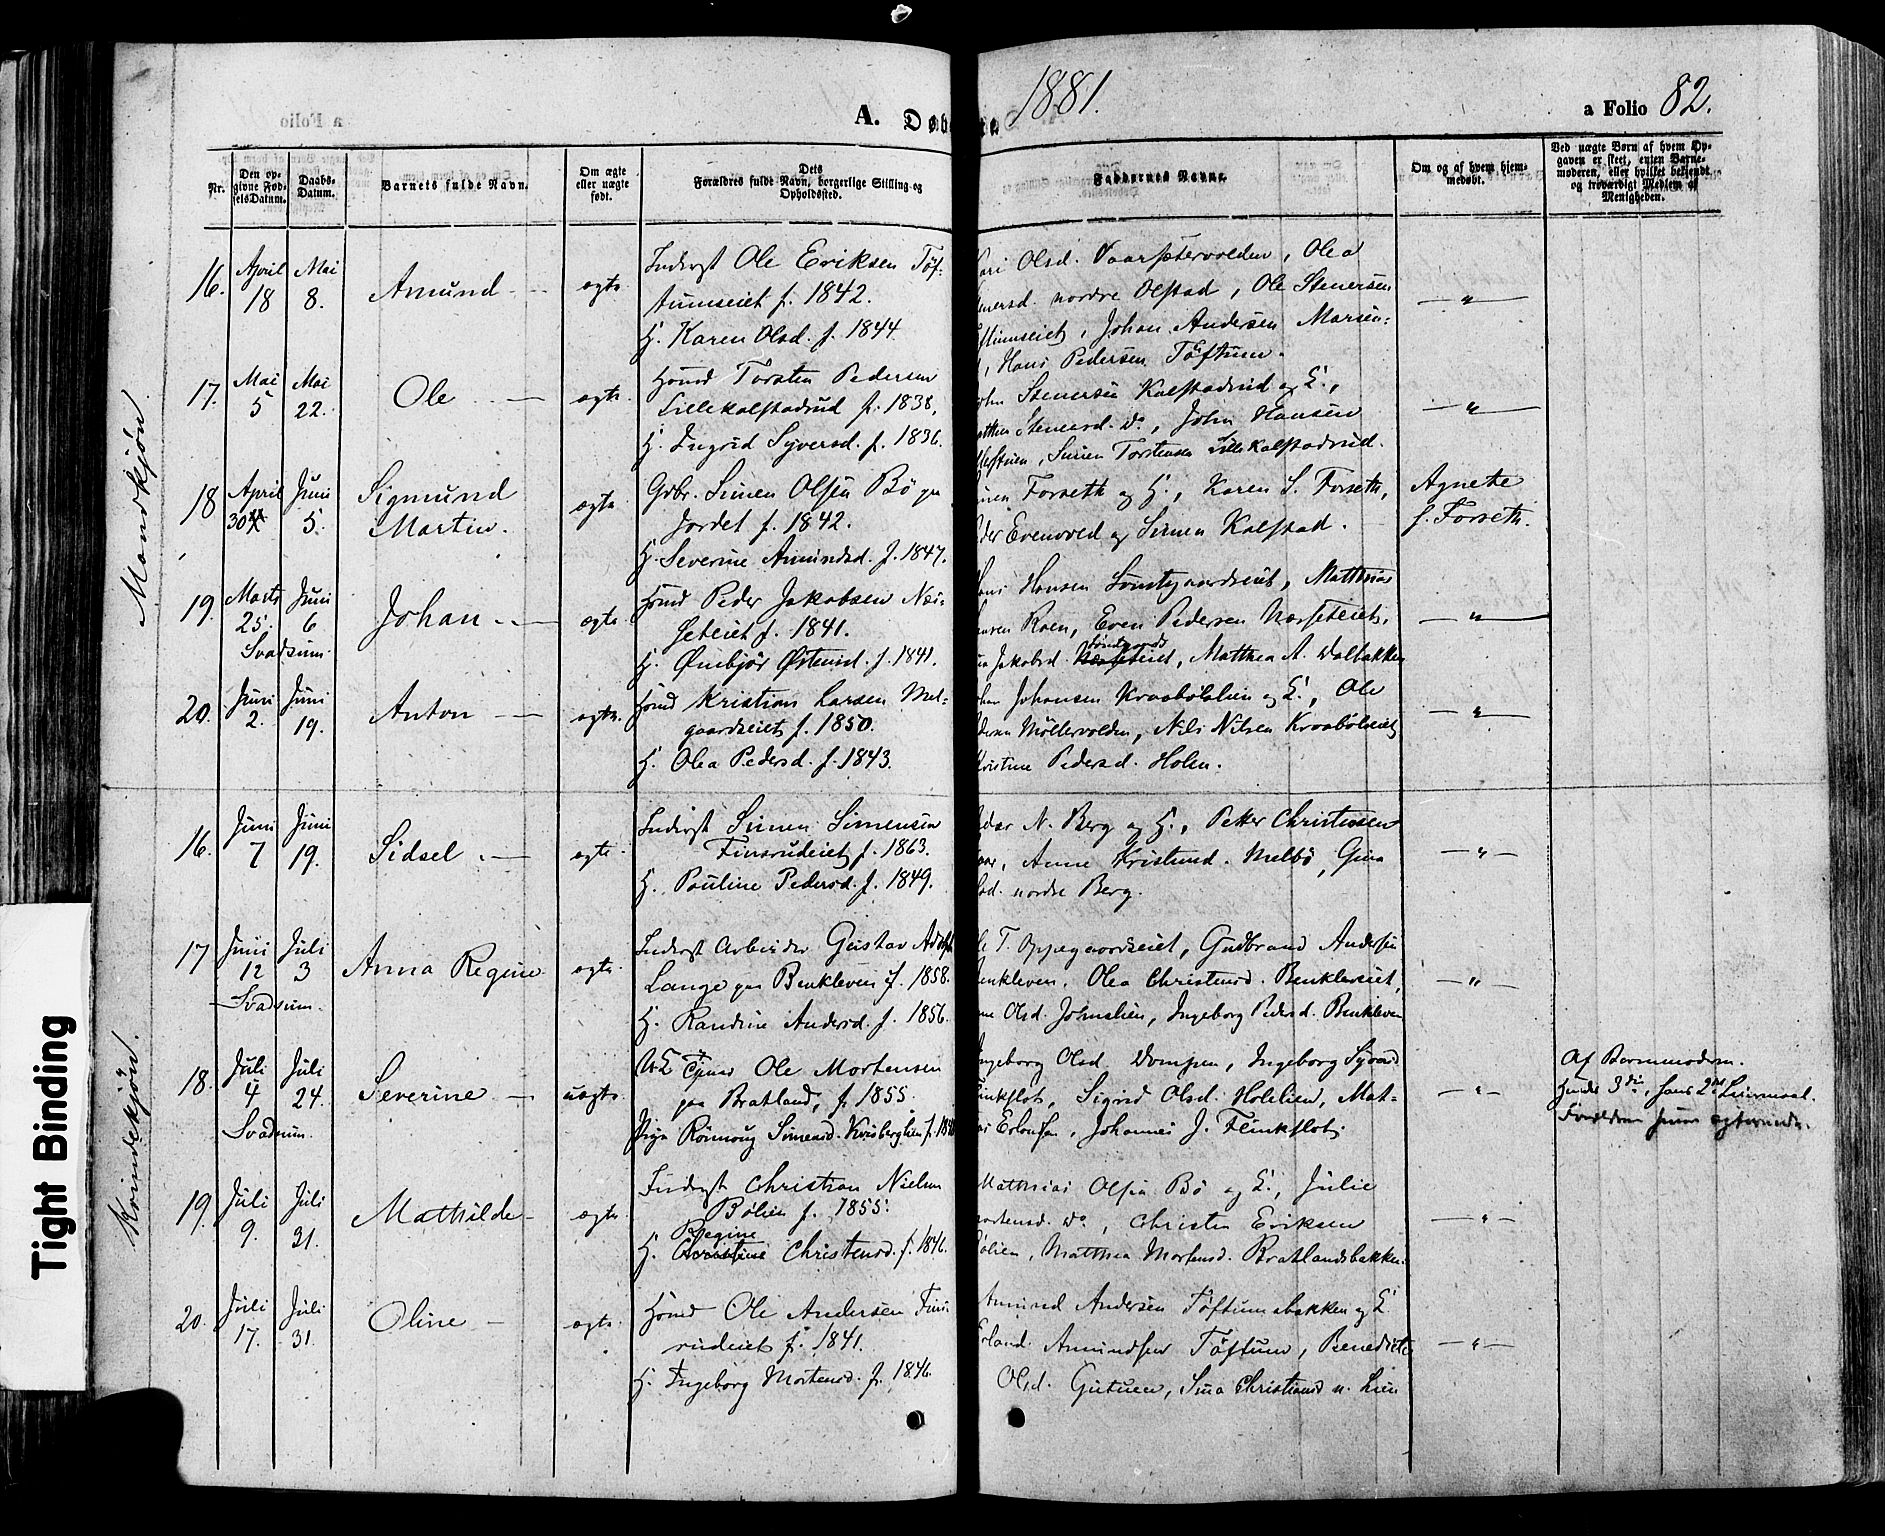 1881.
A. Døbte.
a Folio 82.
Nr.
Den opgivne Fødsels Datum.
Daabs-Datum.
Barnets fulde Navn.
Om ægte eller uægte født.
Dets Forældres fulde Navn, borgerlige Stilling og Opholdssted.
Faddernes Navne.
Om og af hvem hjemmedøbt.
Ved uægte Børn af hvem Opgaven er skeet, enten Barnemoderen, eller hvilket bekjendt og troværdigt Medlem af Menigheden.
Mandkjøn.
16. April 18 Mai 8. Amund ægte
Inderst Ole Eriksen Töf-
tumseiet f. 1842.
H. Karen Olsd. f. 1844.
Kari Olsd. Olea
nordre Olstad, Ole Stenersen
Johan Andersen
Hans Pedersen Töftum.
17. Mai 5 Mai 22. Ole ægte
Huusmd Torsten Pedersen
Lillekalstadrud f. 1838,
H. Ingrid Syversd. f. 1836.
Stenersen Kalstadrud og H.,
Stenersd. do, John Hansen
Simen Torstensen Lillekalstadrud.
18 April 30 Juni 5. Sigmund Martin. ægte
Gbr. Simen Olsen Bö paa
Jordet f. 1842.
H. Severine Amundsd. f. 1847.
Forseth og H., Karen S. Forseth,
Evenvold og Simen Kalstad.
Agnete
S. Forseth.
19. Marts 25. Juni 6 Johan ægte
Svadsum.
Huusmd Peder Jakobsen Næs-
seteiet f. 1841.
H. Østensd. f. 1841.
Hans Hansen Matthias
Hansen Roen, Even Pedersen Næsseteiet,
Jakobsd. Matthea A. Dalbakken
20. Juni 2. Juni 19. Anton ægte
Huusmd Kristian Larsen Mel-
gaardseiet f. 1850.
H. Olea Pedersd. f. 1843.
Johan Johansen Kraabölslien og H., Ole
Pedersen Möllervolden, Nils Nilsen Kraabölseiet
Kristine Pedersd. Holen.
Kvindekjøn.
16. Juni 7 Juni 19. Sidsel ægte
Inderst Simen Simensen
Finsrudeiet f. 1863.
H. Pauline Pedersd. f. 1849.
Peder N. Berg og H., Petter Christensen
Anne Kristensd. Melbö, Gina
Olsd. nordre Berg.
17 Juni 12 Juli 3 Anna Regine ægte
Svadsum.
Inderst Arbeider Gustav Adolf
Lange paa Benkleven f. 1858.
H. Randine Andersd. f. 1856.
Ole T. Oppegaardseiet, Gudbrand Andersen
Benkleven, Olea Christensd. Benkleveiet,
Olsd. Johnslien, Ingeborg Pedersd. Benkleven
18. Juli 4 Juli 24. Severine uægte.
Svadsum.
Ole Mortensen
paa Bratland, f. 1855.
Pige Rönnoug Simensd. Kvisberglien f.
Ingeborg Olsd. Dompen, Ingeborg Syversd
Finkflot, Sigrid Olsd. Holelien, Mat-
Erlandsen, Johannes J. Finkflot.
Af Barnemoderen.
Hendes 3die, hans 2det Leiermaal.
19. Juli 9. Juli 31. Mathilde ægte
Inderst Christian Nielsen
Bölien f. 1855.
Regine
H. Christine Christensd. f. 1846.
Matthias Olsen Bö og H., Julie
Mortensd. do, Christen Eriksen
Bölien, Matthea Mortensd. Bratlandsbakken.
20. Juli 17. Juli 31. Oline ægte
Huusmd Ole Andersen Fins-
rudeiet f. 1841.
H. Ingeborg Mortensd. f. 1846.
Amund Andersen Töftumsbakken og H.
Erland Amundsen Töftum, Benedicte
Olsd. Gutuen, Sina Christiansd n. Lien
Tight Binding